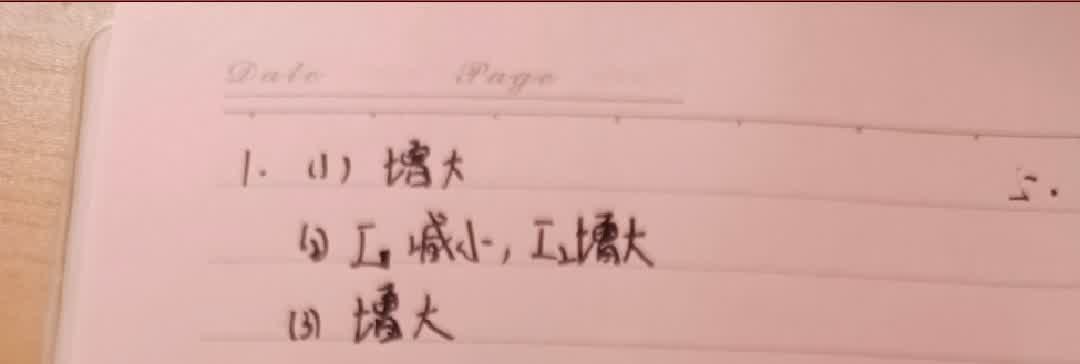 Date Page
1. (1) 增大
5.
(2) I₁ 减小, I₂增大
(3) 增大